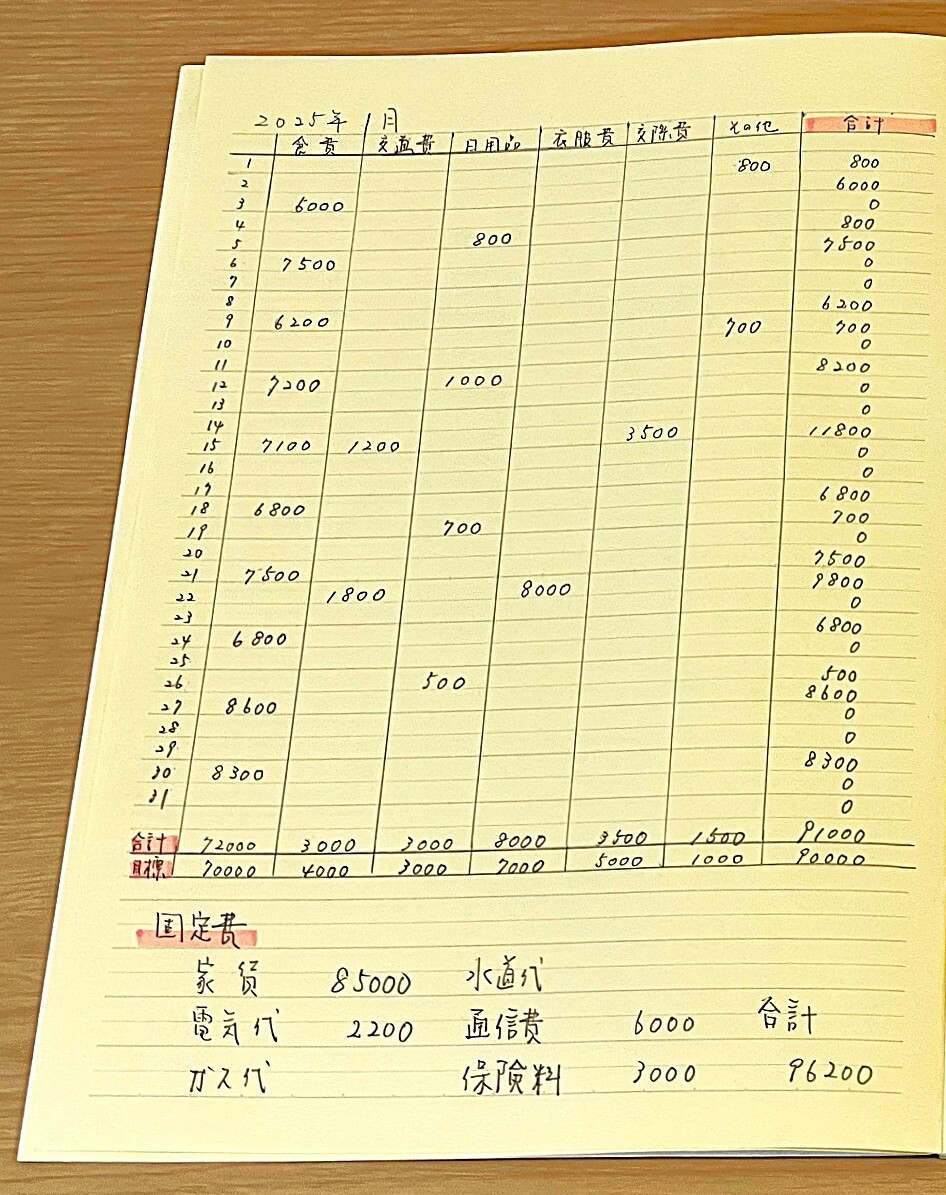 2025年 1月
食費 交通費 日用品 衣服費 交際費 その他 合計
1
2 800 800
3 6000 6000
4 0
5 800 800
6 7500 7500
7 0
8 0
9 6200 6200
10 700 700
11 0
12 7200 1000 8200
13 0
14 0
15 7100 1200 3500 11800
16 0
17 0
18 6800 6800
19 700 700
20 0
21 7500 7500
22 1800 8000 9800
23 0
24 6800 6800
25 0
26 500 500
27 8600 8600
28 0
29 0
30 8300 8300
31 0
0
合計 72000 3000 3000 8000 3500 1500 91000
目標 70000 4000 3000 7000 5000 1000 90000
固定費
家賃 85000 水道代
電気代 2200 通信費 6000 合計
ガス代 保険料 3000 96200